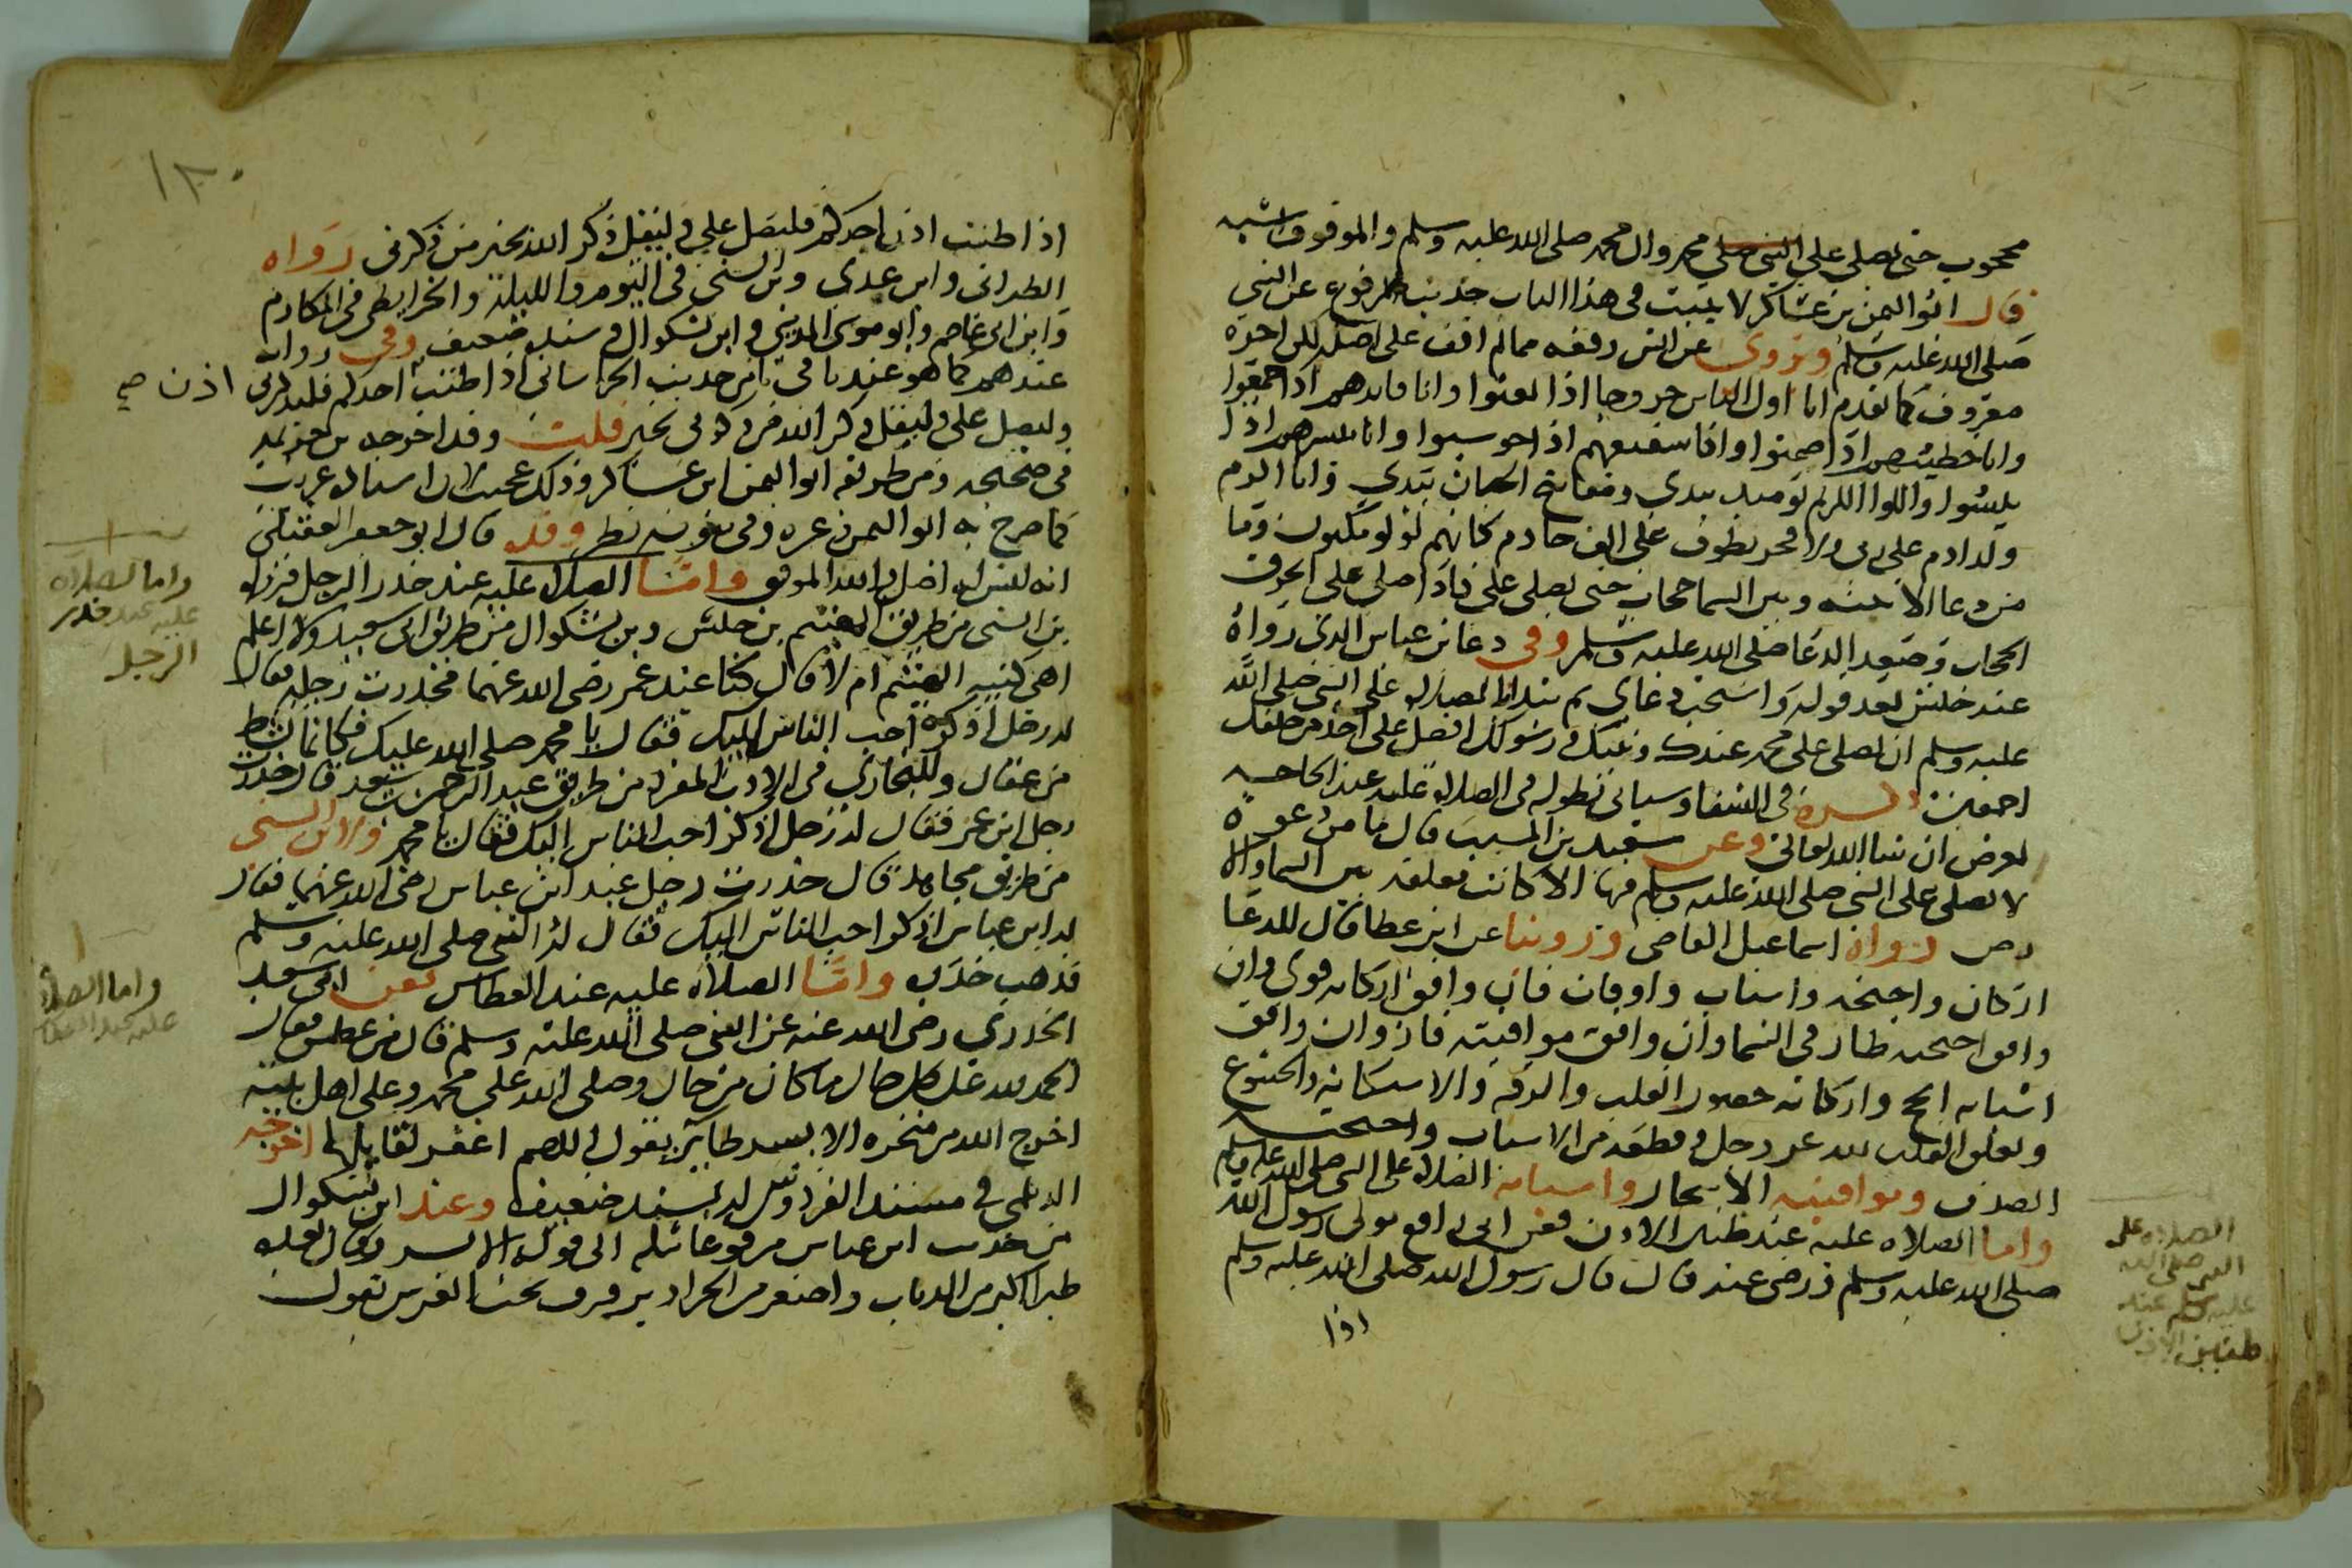 محجوب حتى يصلى على النبى صلى محمد وال محمد صلى الله عليه وسلم والموقوف اشبه
قال ابو اليمن بن عساكر لا يثبت فى هذا الباب حديث مرفوع عن النبي
صلى الله عليه وسلم ويروى عن انس رفعه مما لم اقف على اصله لكن اخره
معروف كما تقدم انا اول الناس خروجا اذا بعثوا وانا قايدهم اذا جمعوا
وانا خطيبهم اذا صمتوا وانا شفيعهم اذا حوسبوا وانا مبشرهم اذا
يئسوا واللوا الكريم يوميذ بيدي ومفاتيح الجنان بيدي وانا اكرم
ولد ادم على ربى ولا فخر يطوف على الف خادم كانهم لولو مكنون وما
من دعا الا بينه وبين السما حجاب حتى يصلى على فاذا صلى على انخرق
الحجاب وصعد الدعا صلى الله عليه وسلم وفى دعا بن عباس الذى رواه
عند حنش بعد قوله واستجب دعاى ثم تبدا بالصلاة على النبى صلى الله
عليه وسلم ان تصلى على محمد عبدك ونبيك ورسولك افضل على احد من خلقك
اجمعين فى الشفا وسياتى بطوله فى الصلاة عليه عند الحاجه
تعرض ان شا الله تعالى وعن سعيد بن المسيب قال ما من دعوة
لا يصلى على النبي صلى الله عليه وسلم قبلها الا كانت معلقة بين السما والا
رض رواه اسماعيل القاضى وروينا عن ابن عطا قال للدعا
اركان واجنحه واسباب واوقات فان وافق اركانه قوى وان
وافق اجنحته طار فى السما وان وافق مواقيته فاز وان وافق
اسبابه انجح واركانه حضور القلب والرقه والاستكانه والخشوع
وتعلق القلب بالله عز وجل وقطعه من الاسباب واجنحته
الصدق ومواقيته الاسحار واسبابه الصلاة على النبى صلى الله عليه وسلم
واما الصلاه عليه عند طنين الاذن فعن ابى رافع مولى رسول الله
صلى الله عليه وسلم ورضى عنه قال قال رسول الله صلى الله عليه وسلم
اذا
الصلاه على
النبى صلى الله
عليه وسلم عند
طنين الاذن
١٨٠
اذا طنت اذن احدكم فليصل علي وليقل ذكر الله بخير من ذكرنى رواه
الطبرانى وابن عدى وابن السنى فى اليوم والليلة والخرايطى فى المكارم
وابن ابى عاصم وابو موسى المدينى وابن بشكوال وسنده ضعيف وفى رواية
عندهم كما هو عند باقى حديث الخراسانى اذا طنت احدكم فليذكرنى اذن صح
وليصل على وليقل ذكر الله من ذكرنى بخير قلت وقد اخرجه بن خزيمة
فى صحيحه ومن طريقه ابو اليمن ابن عساكر وذلك عجيب لان اسناده غريب
كما صرح به ابو اليمن وغيره وفى ثبوته نظر وقد قال ابو جعفر العقيلى
انه ليس له اصل والله الموفق واما الصلاه عليه عند خدر الرجل فرواه
بن السنى من طريق الهيثم بن حنش وبن بشكوال من طريق ابى سعيد ولا اعلم
اهى كنيه الهيثم ام لا قال كنا عند بن عمر رضى الله عنهما فخدرت رجله فقال
له رجل اذكر احب الناس اليك فقال يا محمد صلى الله عليك فكانما نشط
من عقال وللبخاري فى الادب المفرد من طريق عبد الرحمن بن سعد قال خدرت
رجل ابن عمر فقال له رجل اذكر احب الناس اليك فقال يا محمد ولابن السنى
من طريق مجاهد قال خدرت رجل عند ابن عباس رضى الله عنهما فقال
له ابن عباس اذكر احب الناس اليك فقال له النبي صلى الله عليه وسلم
فذهب خدره واما الصلاه عليه عند العطاس فعن ابى سعيد
الخدري رضى الله عنه عن النبى صلى الله عليه وسلم قال من عطس فقال
الحمد لله على كل حال ما كان من حال وصلى الله على محمد وعلى اهل بيته
اخرج الله من منخره الايسر طايرا يقول اللهم اغفر لقايلها اخرجه
الديلمي فى مسند الفردوس له بسند ضعيف وعند ابن بشكوال
من حديث ابن عباس مرفوعا مثله الى قوله الايسر وقال بعده
طيرا اكبر من الذباب واصغر من الجراد يرفرف تحت العرش يقول
واما الصلاه
عليه عند خدر
الرجل
واما الصلاة
عليه عند العطاس